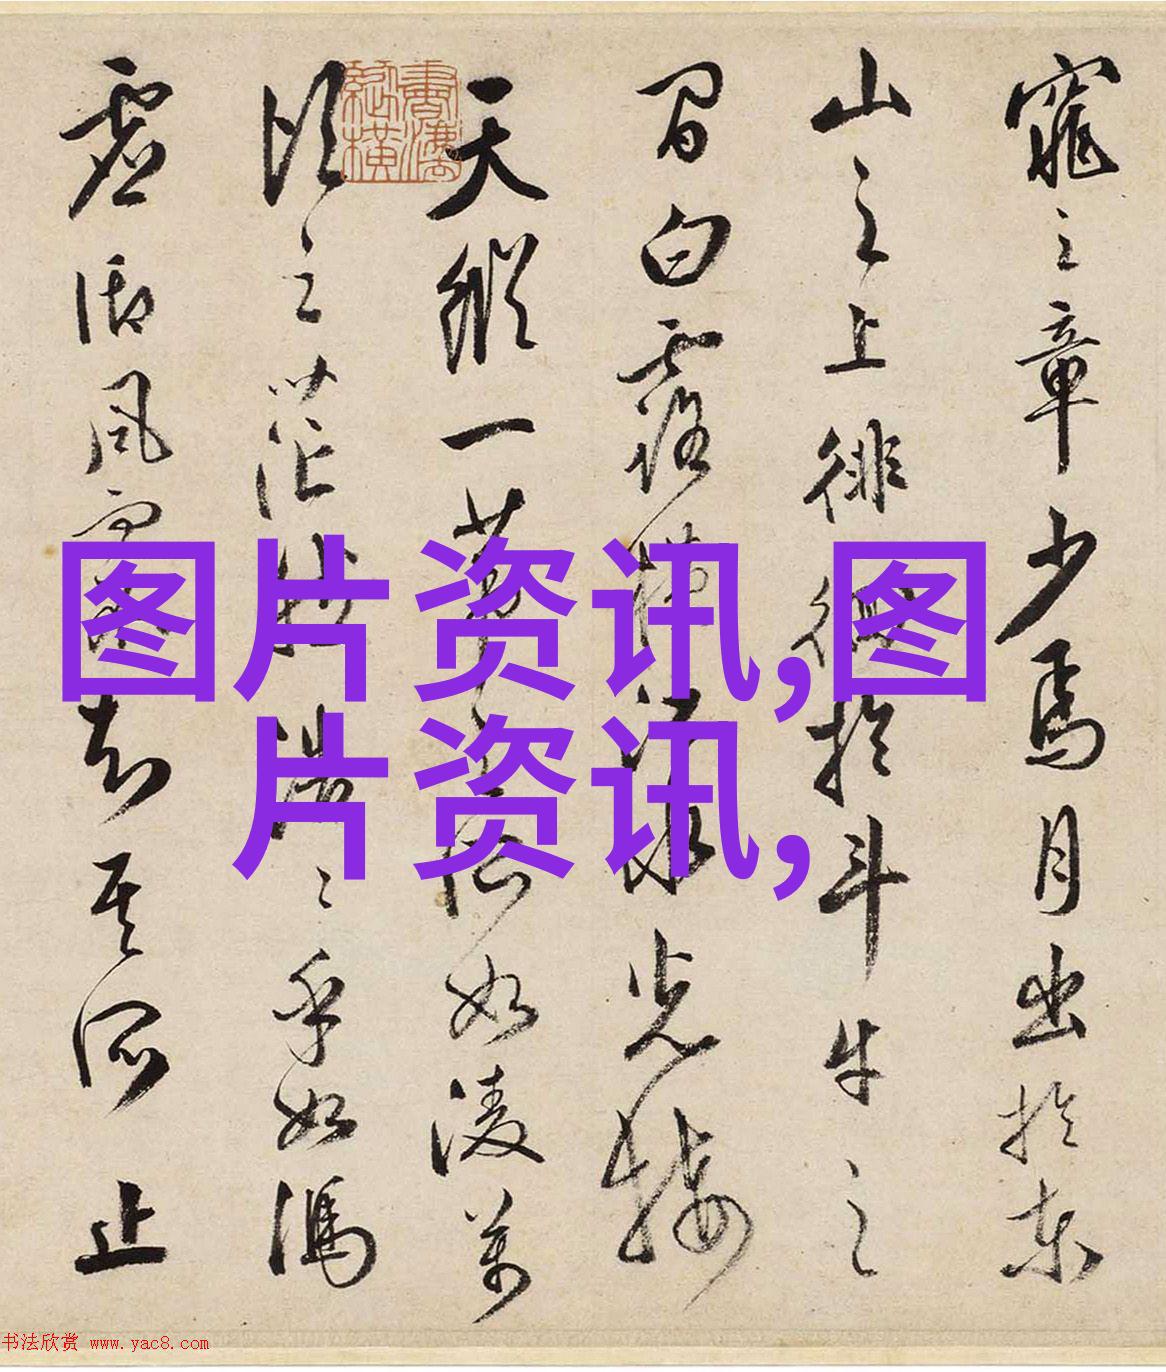 窕之章少焉月出於東
山之上徘徊於斗牛之
間白露橫江水光接
天縱一葦之所如凌萬
頃之茫然浩〻乎如馮
虛御風而不知其所止
图片资讯,图
片资讯,
书法欣赏 www.yac8.com